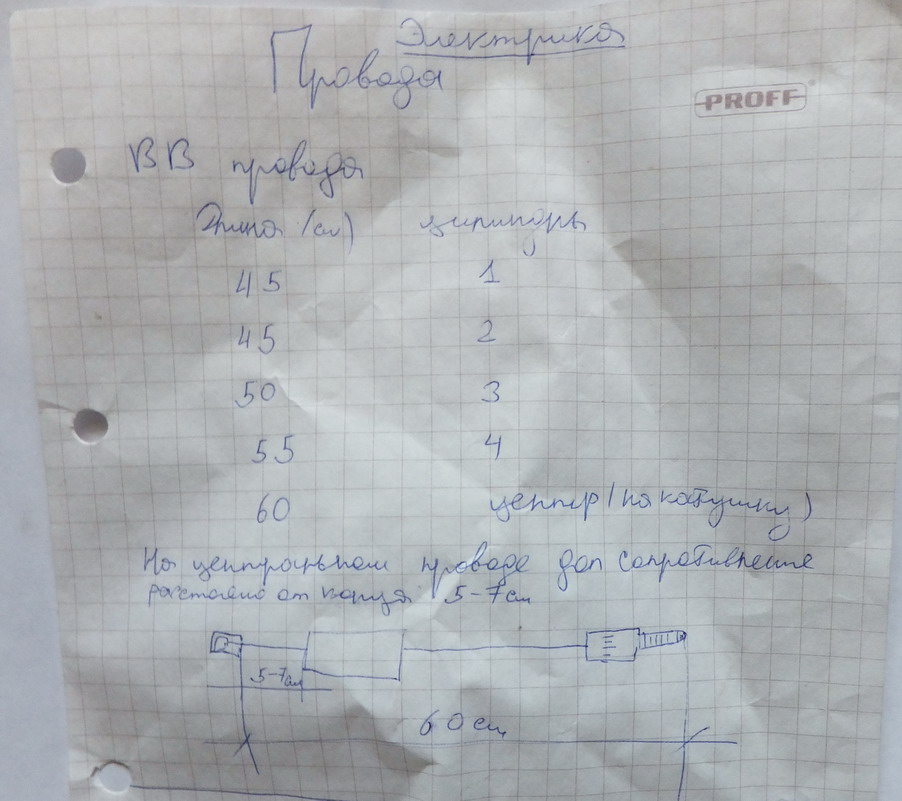 Электрика
Провода
PROFF
ВВ провода
Длина (см) цилиндры
45 1
45 2
50 3
55 4
60 центр (на катушку)
На центральном проводе доп сопротивление
расстояние от конца 5-7см
5-7см
60 см